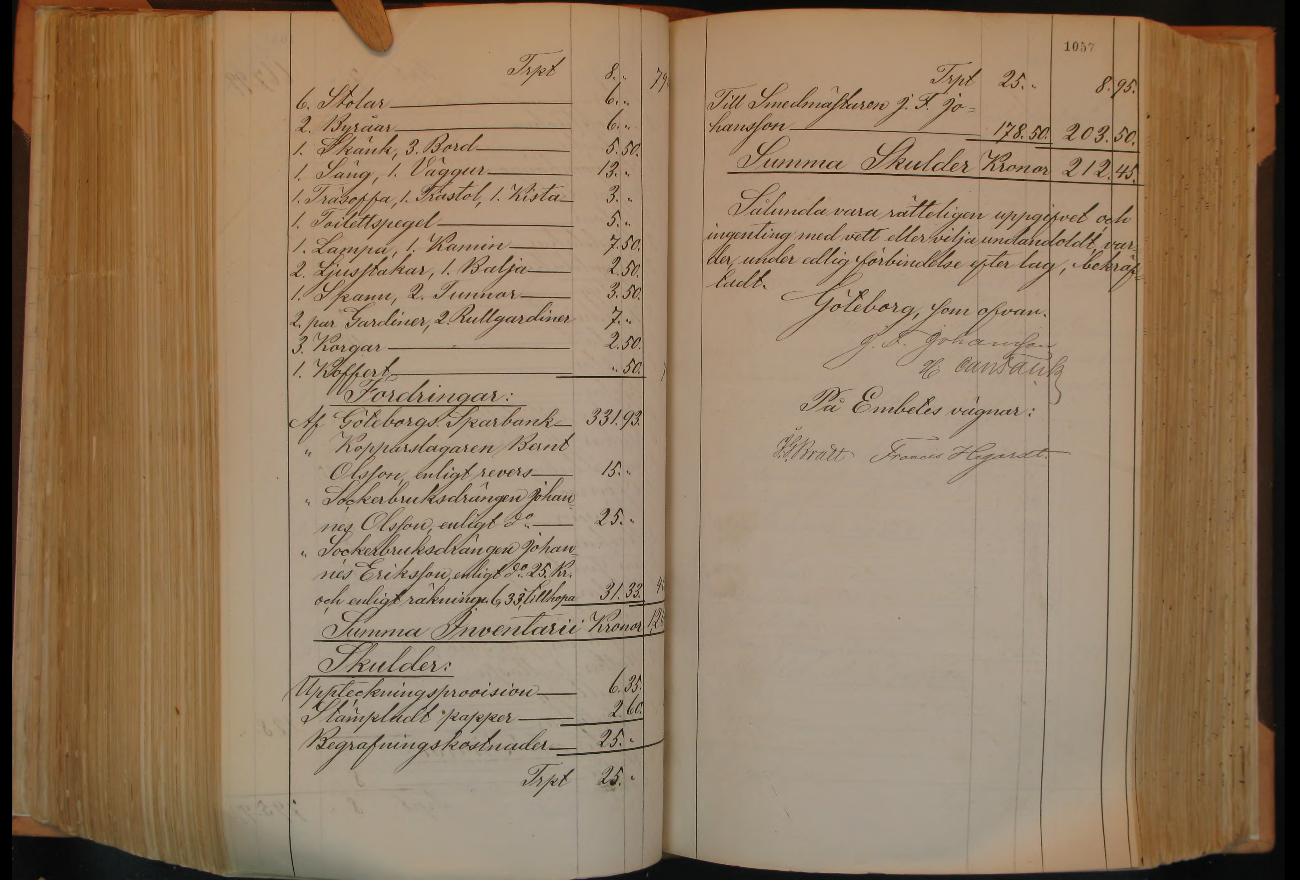 Trpt 8. „ 79
6. Stolar 6. „
2. Byråar 6. „
1. Skänk, 3. Bord 5.50.
1. Säng, 1. Vaggur 13. „
1. Träsoffa, 1. Trästol, 1. Kista 3. „
1. Toilettspegel 5. „
1. Lampa, 1. Kamin 7.50.
2. Ljusstakar, 1. Balja 2.50.
1. Spann, 2. Tunnor 3.50.
2. par Gardiner, 2. Rullgardiner 7. „
3. Korgar 2.50.
1. Koffert „ 50.
Fordringar:
Af Göteborgs Sparbank 331.93.
„ Kopparslagaren Bernt
Olsson, enligt revers 15. „
„ Sockerbruksdrängen Johan
nes Olsson, enligt do 25. „
„ Sockerbruksdrängen Johan
nes Eriksson, enligt do 25. Kr.
och enligt räkning 6,33, tillhopa 31.33.
Summa Inventarii Kronor
Skulder:
Uppteckningsprovision 6.35.
Stämpladt papper 2.60.
Begrafningskostnader 25. „
Trpt 25. „
1057
Trpt 25. „ 8.95.
Till Smedmästaren J. F. Jo=
hansson 178.50. 203.50.
Summa Skulder Kronor 212.45.
Sålunda vara rätteligen uppgifvet och
ingenting med vett eller vilja undandoldt, var-
der, under edlig förbindelse efter lag, bekräf-
tadt.
Göteborg, som ofvan.
J. F. Johansson
På Embetes vägnar:
Bratt Frances Hegardt